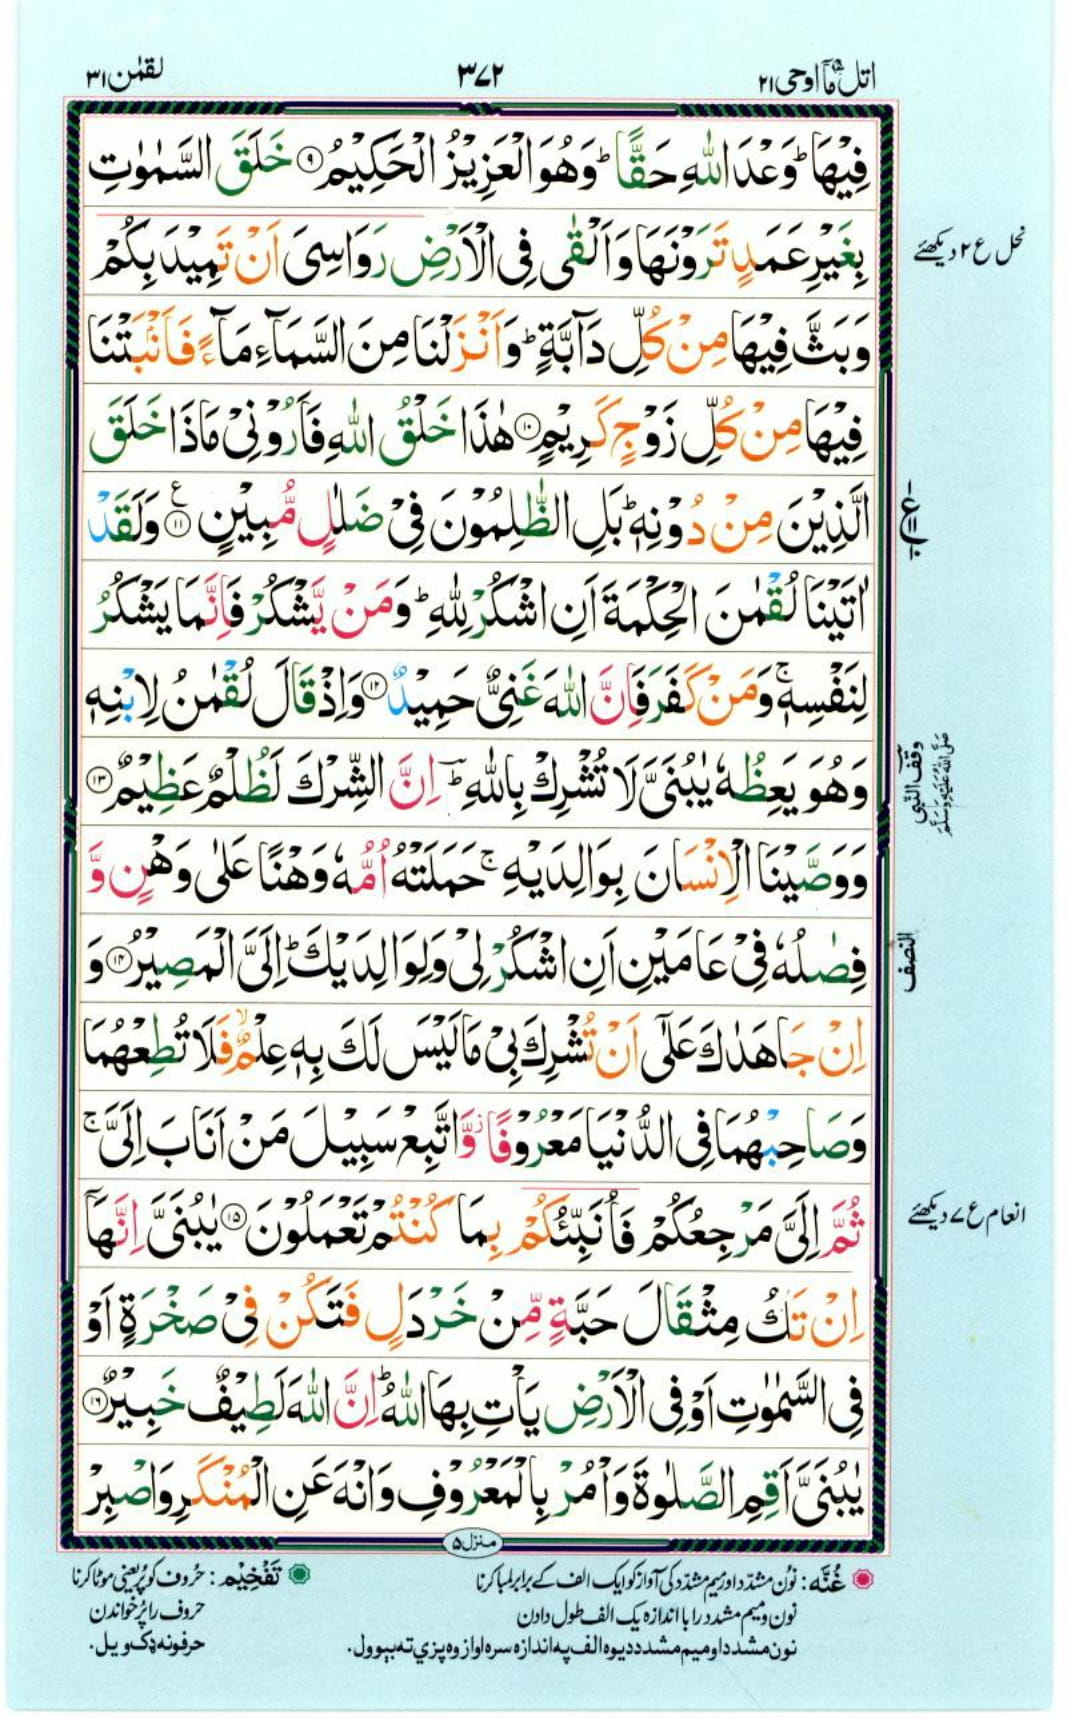 اتل مآ اوحی ۲۱
۳۷۲
لقمٰن ۳۱
فِيْهَا ؕ وَعْدَ اللّٰهِ حَقًّا ؕ وَهُوَ الْعَزِيْزُ الْحَكِيْمُ ۹ خَلَقَ السَّمٰوٰتِ
بِغَيْرِ عَمَدٍ تَرَوْنَهَا وَاَلْقٰى فِى الْاَرْضِ رَوَاسِىَ اَنْ تَمِيْدَ بِكُمْ
وَبَثَّ فِيْهَا مِنْ كُلِّ دَآبَّةٍ ؕ وَاَنْزَلْنَا مِنَ السَّمَآءِ مَآءً فَاَنْۢبَتْنَا
فِيْهَا مِنْ كُلِّ زَوْجٍ كَرِيْمٍ ۱۰ هٰذَا خَلْقُ اللّٰهِ فَاَرُوْنِىْ مَاذَا خَلَقَ
الَّذِيْنَ مِنْ دُوْنِهٖ ؕ بَلِ الظّٰلِمُوْنَ فِىْ ضَلٰلٍ مُّبِيْنٍ ۱۱ ع وَلَقَدْ
اٰتَيْنَا لُقْمٰنَ الْحِكْمَةَ اَنِ اشْكُرْ لِلّٰهِ ؕ وَمَنْ يَّشْكُرْ فَاِنَّمَا يَشْكُرُ
لِنَفْسِهٖ ۚ وَمَنْ كَفَرَ فَاِنَّ اللّٰهَ غَنِىٌّ حَمِيْدٌ ۱۲ وَاِذْ قَالَ لُقْمٰنُ لِابْنِهٖ
وَهُوَ يَعِظُهٗ يٰبُنَىَّ لَا تُشْرِكْ بِاللّٰهِ ؕ اِنَّ الشِّرْكَ لَظُلْمٌ عَظِيْمٌ ۱۳
وَوَصَّيْنَا الْاِنْسَانَ بِوَالِدَيْهِ ۚ حَمَلَتْهُ اُمُّهٗ وَهْنًا عَلٰى وَهْنٍ وَّ
فِصٰلُهٗ فِىْ عَامَيْنِ اَنِ اشْكُرْ لِىْ وَلِوَالِدَيْكَ ؕ اِلَىَّ الْمَصِيْرُ ۱۴ وَ
اِنْ جَاهَدٰكَ عَلٰٓى اَنْ تُشْرِكَ بِىْ مَا لَيْسَ لَكَ بِهٖ عِلْمٌ ۙ فَلَا تُطِعْهُمَا
وَصَاحِبْهُمَا فِى الدُّنْيَا مَعْرُوْفًا ؗ وَّاتَّبِعْ سَبِيْلَ مَنْ اَنَابَ اِلَىَّ ۚ
ثُمَّ اِلَىَّ مَرْجِعُكُمْ فَاُنَبِّئُكُمْ بِمَا كُنْتُمْ تَعْمَلُوْنَ ۱۵ يٰبُنَىَّ اِنَّهَآ
اِنْ تَكُ مِثْقَالَ حَبَّةٍ مِّنْ خَرْدَلٍ فَتَكُنْ فِىْ صَخْرَةٍ اَوْ
فِى السَّمٰوٰتِ اَوْ فِى الْاَرْضِ يَاْتِ بِهَا اللّٰهُ ؕ اِنَّ اللّٰهَ لَطِيْفٌ خَبِيْرٌ ۱۶
يٰبُنَىَّ اَقِمِ الصَّلٰوةَ وَاْمُرْ بِالْمَعْرُوْفِ وَانْهَ عَنِ الْمُنْكَرِ وَاصْبِرْ
نحل ع ۲ دیکھئے
وقف النبی
صَلَّى اللهُ عَلَيْهِ وَسَلَّمَ
النصف
انعام ع ۷ دیکھئے
منزل ۵
غُنَّه : نوُن مشدّد اورمیم مشدّد کی آواز کو ایک الف کے برابر لمبا کرنا
نون و میم مشدد را با اندازه یک الف طول دادن
نون مشدد او میم مشدد دیوه الف په اندازه سره اواز وه پزې ته ببوول.
تَفْخِيْم : حُروف کو پُر یعنی موٹا کرنا
حروف را پُر خواندن
حرفونه ډک ویل.